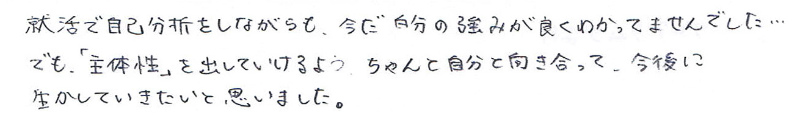 就活で自己分析をしながらも、今だ自分の強みが良くわかってませんでした…
でも、「主体性」を出していけるよう、ちゃんと自分と向き合って、今後に
生かしていきたいと思いました。